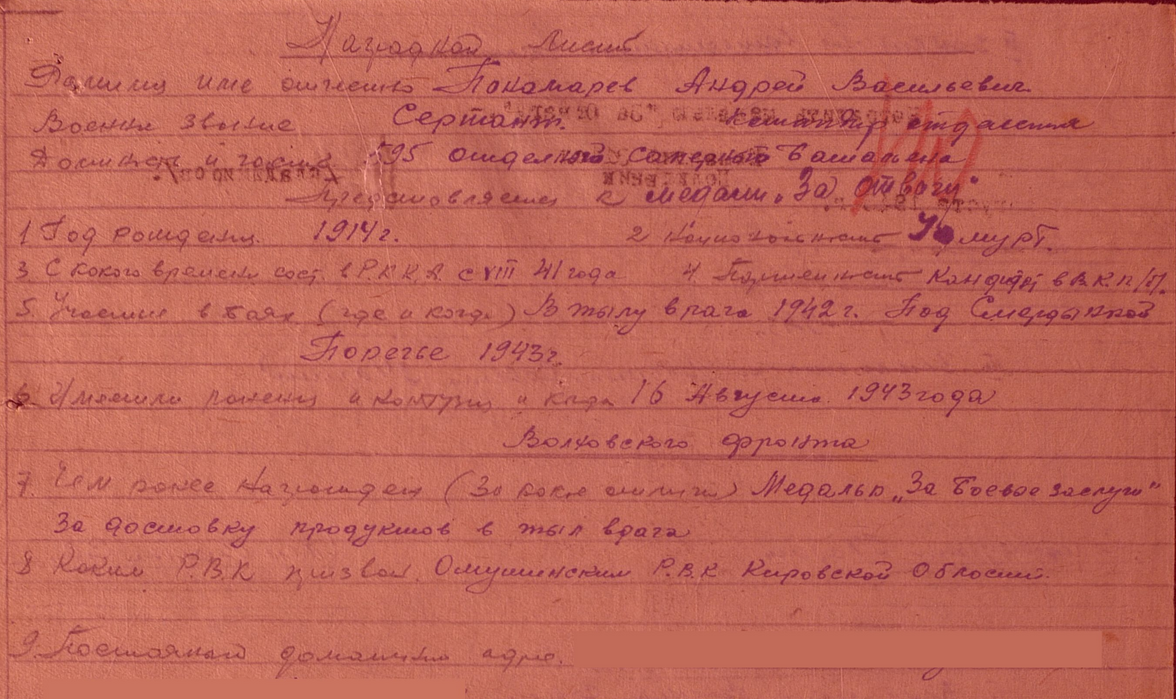 Наградной лист
Фамилия имя отчество Понамарев Андрей Васильевич
Военн звание Сержант. Командир отделения
Должность и часть 595 отдельный саперный батальона
Представляется к медали „За Отвагу"
1 Год рождения 1914г. 2 Национальность Удмурт.
3. С какого времени сост. в Р.К.К.А. с VIII 41 года 4. Партийность Кандидат в В.К.П/б/.
5. Участие в боях (где и когда) В тылу врага 1942г. Под Смердынкой
Поречье 1943г.
6. Имеются ранения и контузии и когда 16 Августа 1943 года
Волховского фронта
7. Чем ранее награжден (За какие отличия) Медалью „За Боевое заслуги"
За доставку продуктов в тыл врага
8 Каким Р.В.К призван. Омутнинским Р.В.К Кировской Области.
9. Постоянного домашний адре.